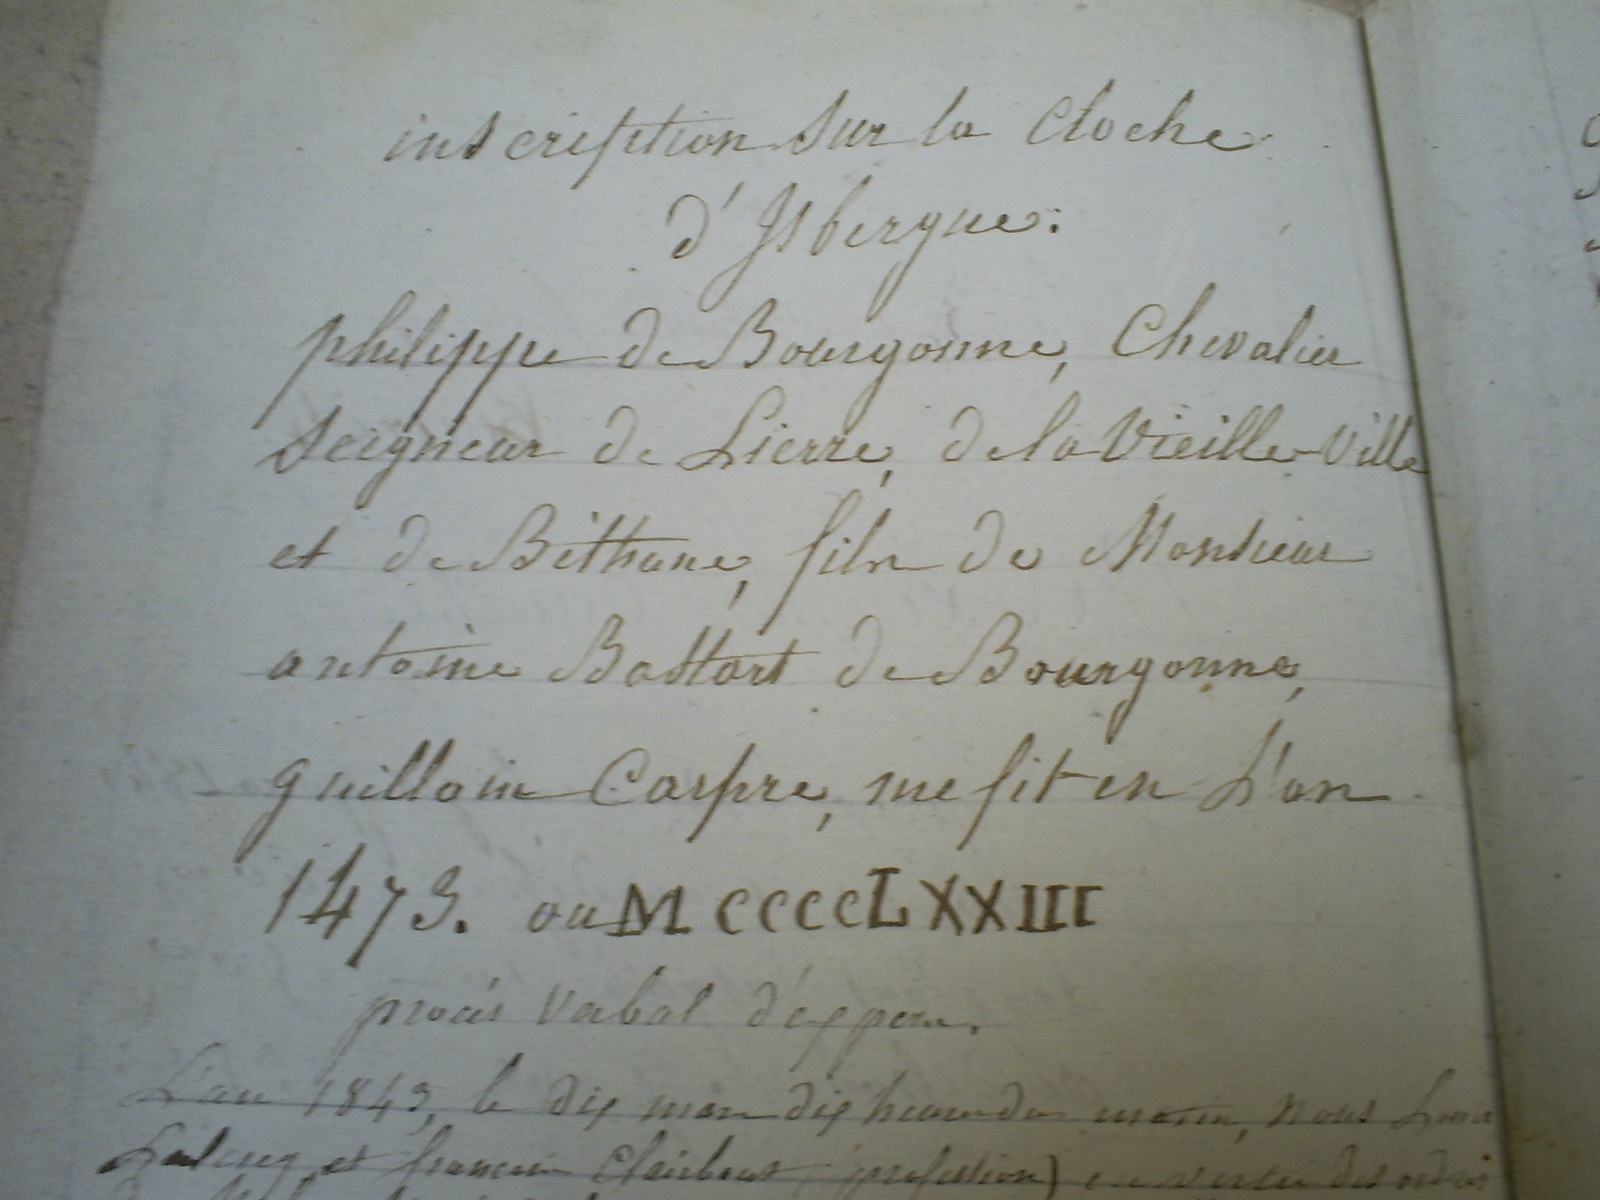 inscription sur la Cloche
d'Isbergue:
philippe de Bourgonne, Chevalier
Seigneur de Lierre, de la Vieille-Ville
et de Béthune, fils de Monsieur
antoine Battart de Bourgonne,
guillain Carpre, me fit en L'an
1473. ou MCCCCLXXIII
procès verbal d'expere.
L'an 1843, le dix mars dix heures du matin, nous Louis
et francois Clairbout (profession) en vertu des ordres